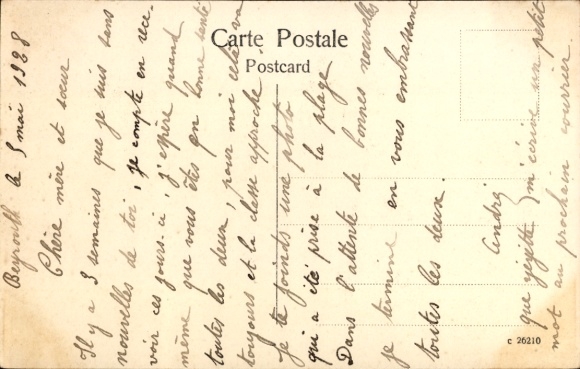 Carte Postale
Postcard
Beyrouth le 5 mai 1928
Chère mère et sœur
Il y a 3 semaines que je suis sans
nouvelles de toi, je compte en rece-
voir ces jours-ci, j'espère quand
même que vous êtes en bonne santé
toutes les deux, pour moi cela va
toujours et la classe approche
je te joinds une photo
qui a été prise à la plage
Dans l'attente de bonnes nouvelles
je termine en vous embrassant
toutes les deux.
André
que m'écrive un petit
mot au prochain courrier.
c 26210